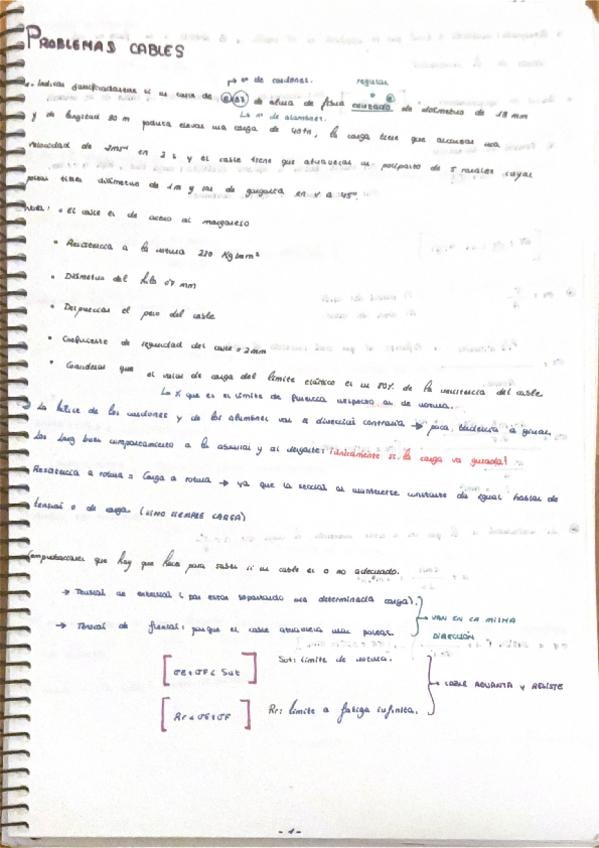 PROBLEMAS CABLES
nº de cordones. regular
1. Indicar justificadamente si un cable de de alma de fibra cruzado de diámetro de 18 mm
Lo nº de alambres.
y de longitud 80 m podría elevar una carga de 40tn, la carga tiene que alcanzar una
velocidad de 2ms⁻¹ en 2 s y el cable tiene que atravesar un polipasto de 5 ramales cuyas
poleas tienen diámetro de 1m y son de garganta en V a 45º.
• El cable es de acero al manganeso
• Resistencia a la rotura 220 Kg/mm²
• Diámetro del hilo 0'7 mm
• Despreciar el peso del cable
• Coeficiente de seguridad del cable = 2mm
• Considerar que el valor de carga del límite elástico es un 80% de la resistencia del cable
Lo % que es el límite de fluencia respecto al de rotura.
La hélice de los cordones y de los alambres van en dirección contraria → poca tendencia a girar.
buen comportamiento a la abrasión y al desgaste: ¡únicamente si la carga va guiada!
Resistencia a rotura = Carga a rotura → ya que la sección se mantiene constante da igual hablar de
tensión o de carga. (SINO SIEMPRE CARGA)
Comprobaciones que hay que hacer para saber si un cable es o no adecuado.
→ Tensión de extensión (por estar soportando una determinada carga).
→ VAN EN LA MISMA
→ Tensión de flexión: porque el cable atraviesa unas poleas.
DIRECCIÓN
σE+σF< Sut Sut: límite de rotura.
→ CABLE AGUANTA Y RESISTE
Rf < σE+σF Rf: límite a fatiga infinita.
-1-